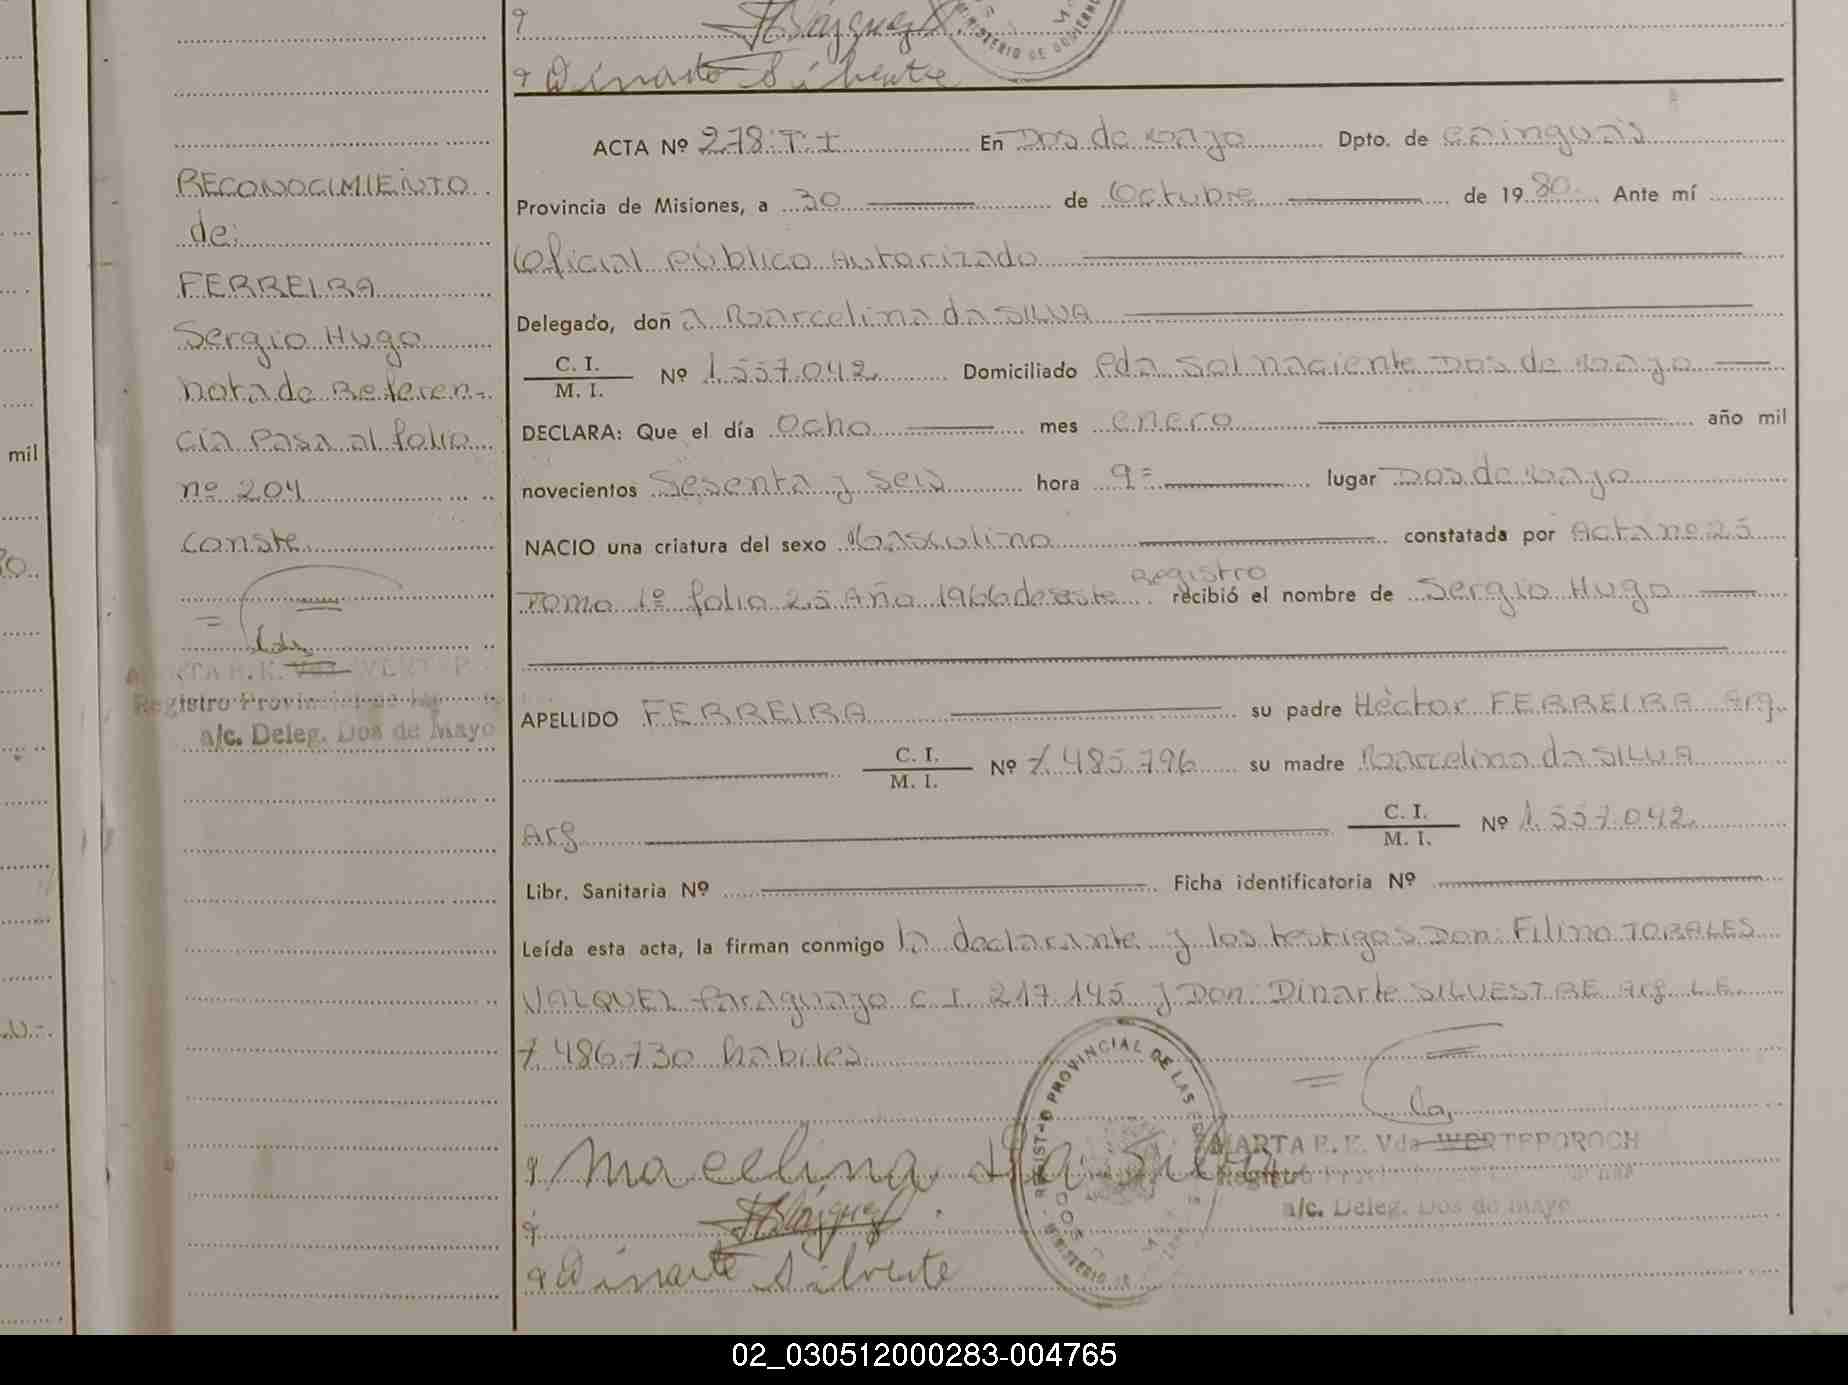 Dinarte Silveste
ACTA Nº 278. T. I En Dos de Mayo Dpto. de Cainguas
RECONOCIMIENTO
Provincia de Misiones, a 30 de Octubre de 1980. Ante mí
de:
Oficial Público Autorizado
FERREIRA
Delegado, doña Marcelina da SILVA
Sergio Hugo
C. I.
M. I. Nº 1.557.042 Domiciliado Pda Sol naciente Dos de Mayo
nota de Referen-
DECLARA: Que el día ocho mes enero año mil
cia Pasa al folio
mil
novecientos sesenta y seis hora 9= lugar Dos de Mayo
nº 204
NACIO una criatura del sexo Masculino constatada por Acta nº 25
conste
Registro
Tomo 1º folio 25 Año 1966 de este recibió el nombre de Sergio Hugo
Registro
a/c. Deleg. Dos de Mayo
APELLIDO FERREIRA su padre Hèctor FERREIRA Arg.
C. I.
M. I. Nº 7.485.796 su madre Marcelina da SILVA
Arg C. I.
M. I. Nº 1.557.042
Libr. Sanitaria Nº Ficha identificatoria Nº
Leída esta acta, la firman conmigo la declarante y los testigos Don: Filino TORALES
VAZQUEZ Paraguayo C.I. 217.145 y Don: Dinarte SILVESTRE Arg L.E.
7.486.730 habiles
REGISTRO PROVINCIAL DE LAS
MINISTERIO DE
MARTA E. E. Vda WERTEPOROCH
Macelina da Silva
Registro
a/c. Deleg. Dos de Mayo
Dinarte Silveste
02_030512000283-004765